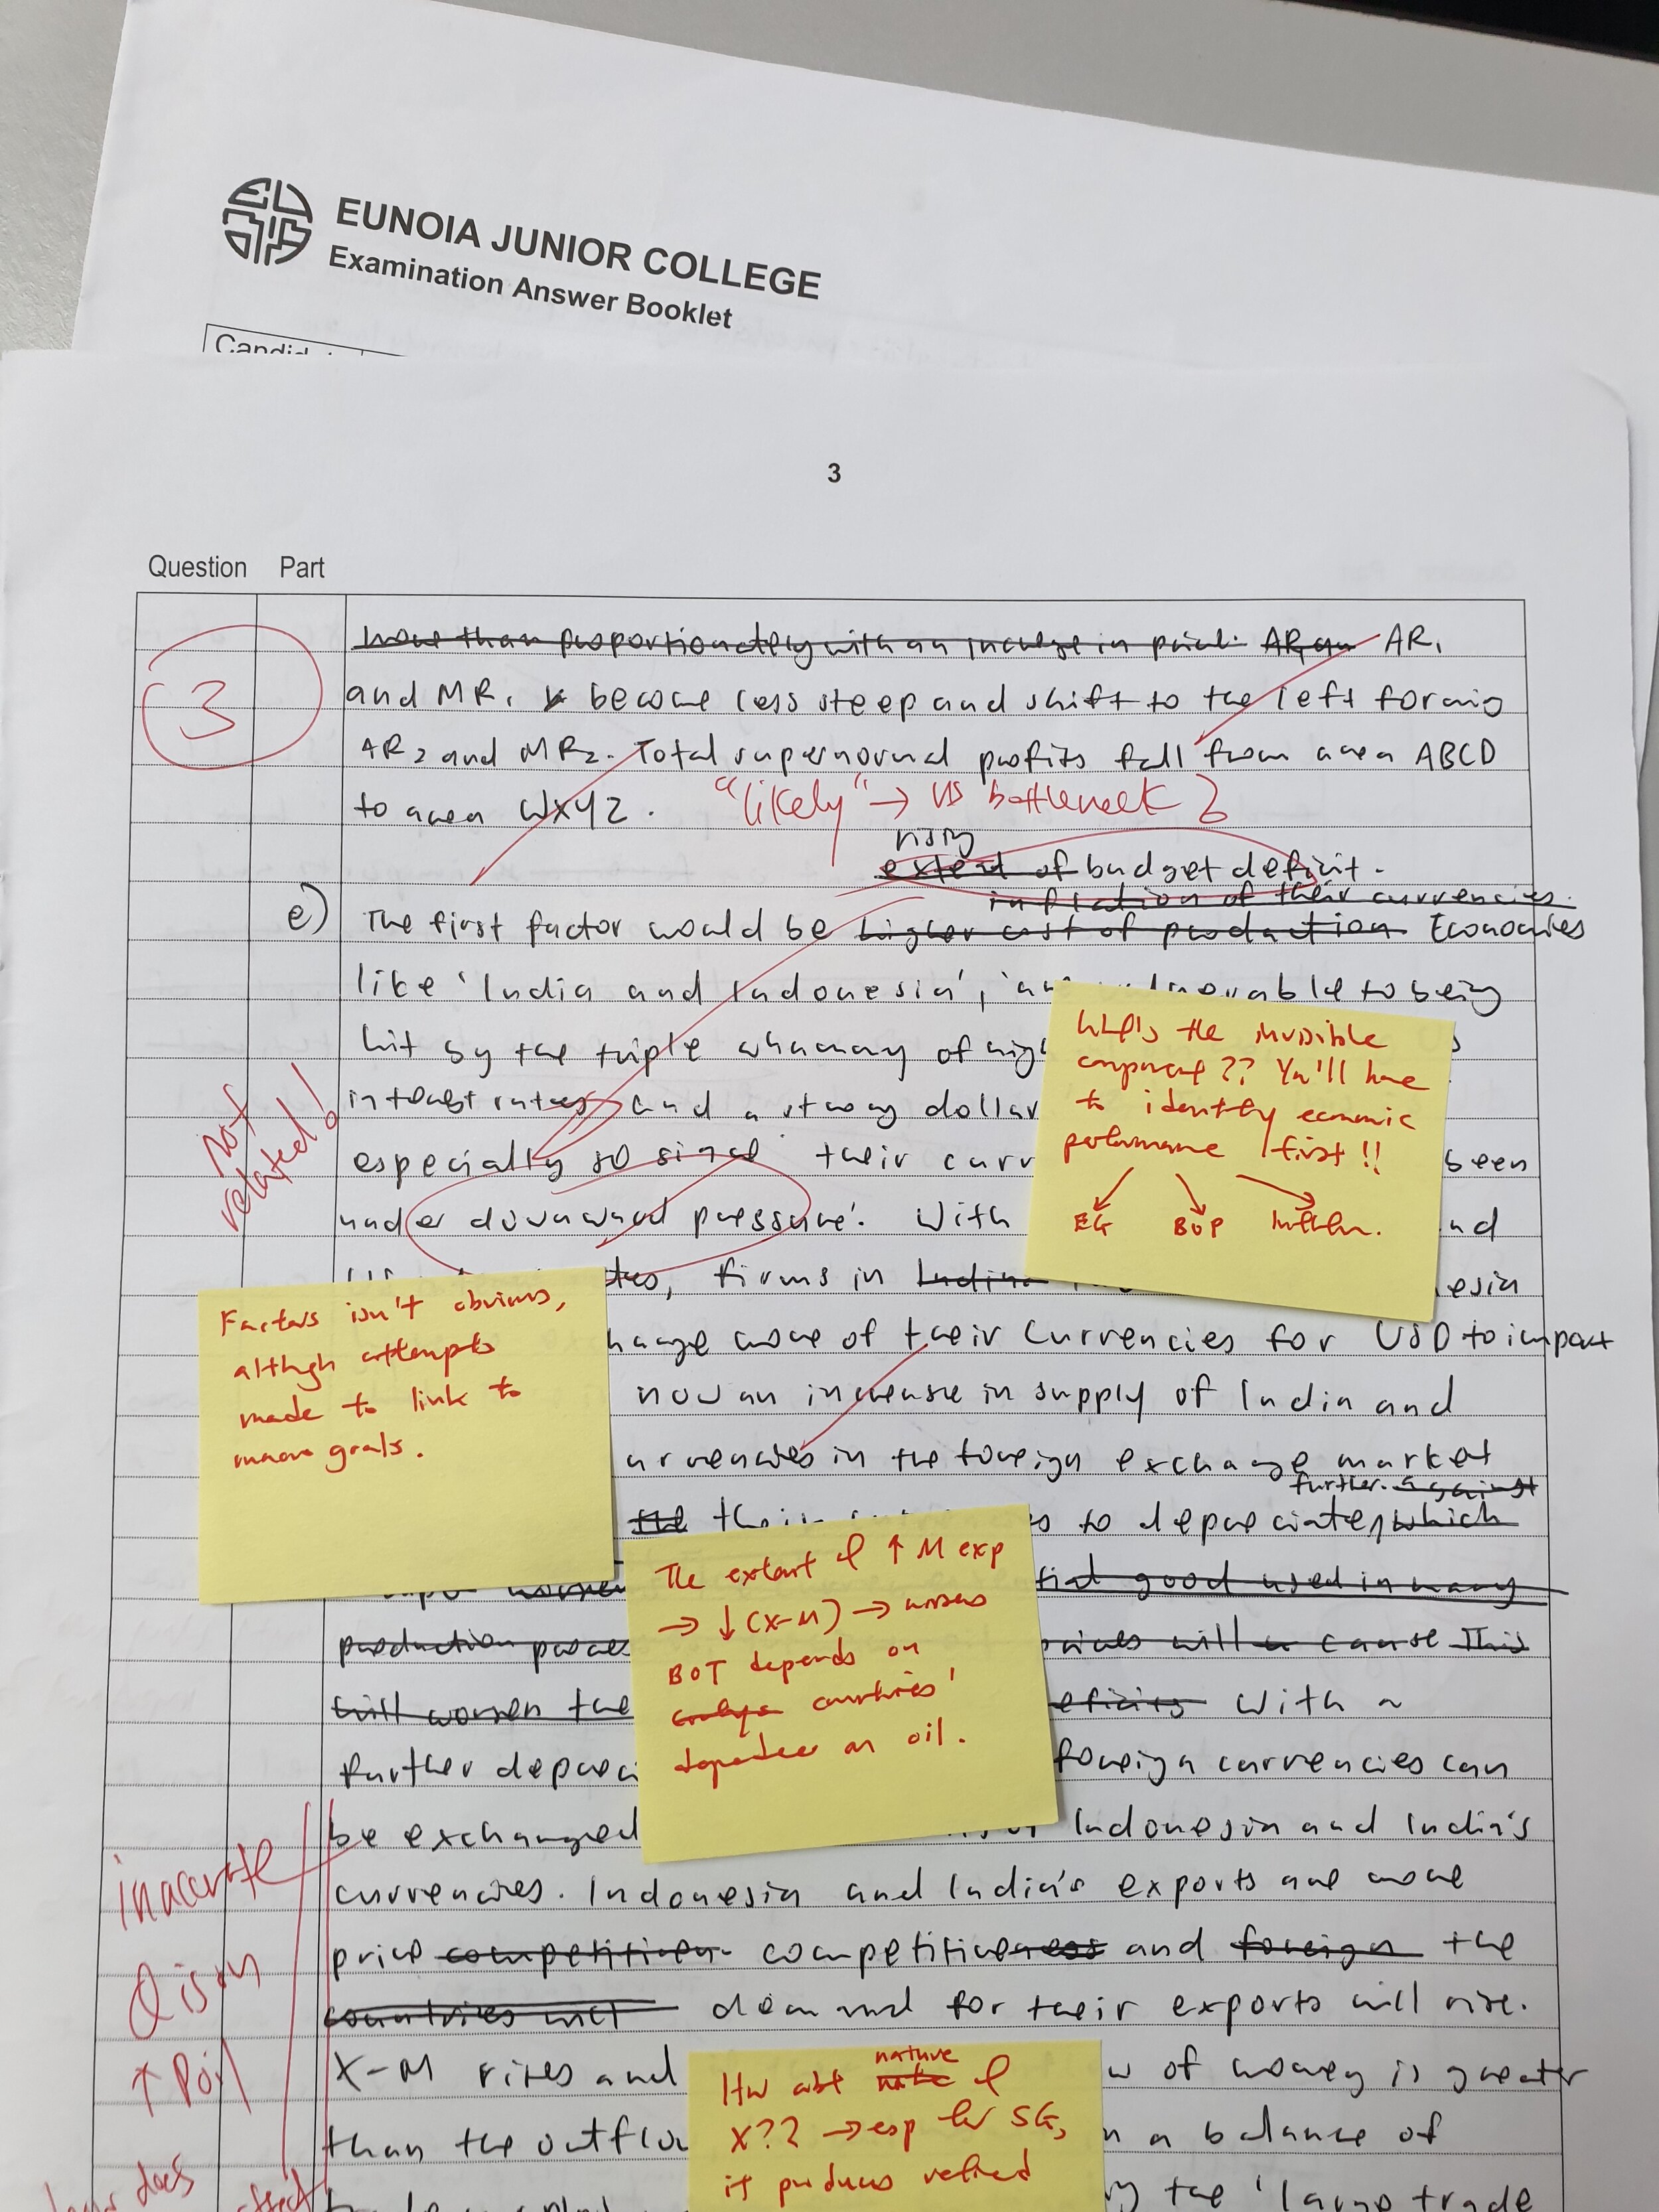 EUNOIA JUNIOR COLLEGE
Examination Answer Booklet
3
Question Part
3
more than proportionately with an increase in price. AR, AR₁
and MR₁ become less steep and shift to the left forming
AR₂ and MR₂. Total supernormal profits fall from area ABCD
to area WXYZ.
"likely" → vs bottleneck?
rising
extent of budget deficit.
inflation of their currencies.
e) The first factor would be higher cost of production Economies
like 'India and Indonesia', vulnerable to being
hit by the triple whammy of
interest rates and a strong dollar
especially so since their been
under downward pressure'. With
not related!
firms in India
change more of their currencies for USD to import
now an increase in supply of India and
in the foreign exchange market
further. against
the their to depreciate, which
good used in many
production will cause This
will worsen the With a
further foreign currencies can
be exchanged Indonesia and India's
currencies. Indonesia and India's exports are more
price competitive competitiveness and foreign the
countries will demand for their exports will rise.
X-M rises and of money is greater
than the a balance of
the 'large trade
inaccurate
Q is on
↑ Poil
does
What's the invisible
component?? You'll have
to identify economic
performance first!!
EG BOP Inflatn.
Factors isn't obvious,
although attempts
made to link to
macro goals.
The extent of ↑ M exp
→ ↓(X-M) → worsen
BOT depends on
countries'
dependence on oil.
nature
Hw abt of
X?? → esp for SG,
it produces refined